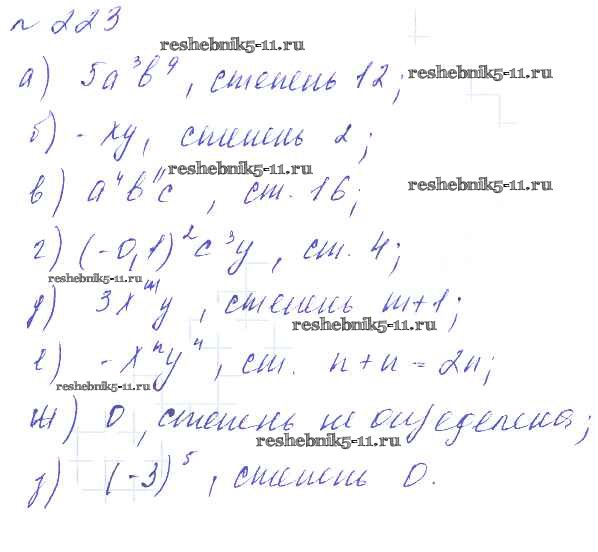 № 223
reshebnik5-11.ru
а) 5a³b⁹, степень 12;
reshebnik5-11.ru
б) -xy, степень 2;
reshebnik5-11.ru
в) a⁴b¹¹c, ст. 16;
reshebnik5-11.ru
г) (-0,1)²c³y, ст. 4;
reshebnik5-11.ru
д) 3xᵐy, степень m+1;
reshebnik5-11.ru
е) -xⁿyⁿ, ст. n+n=2n;
reshebnik5-11.ru
ж) 0, степень не определена;
reshebnik5-11.ru
з) (-3)⁵, степень 0.